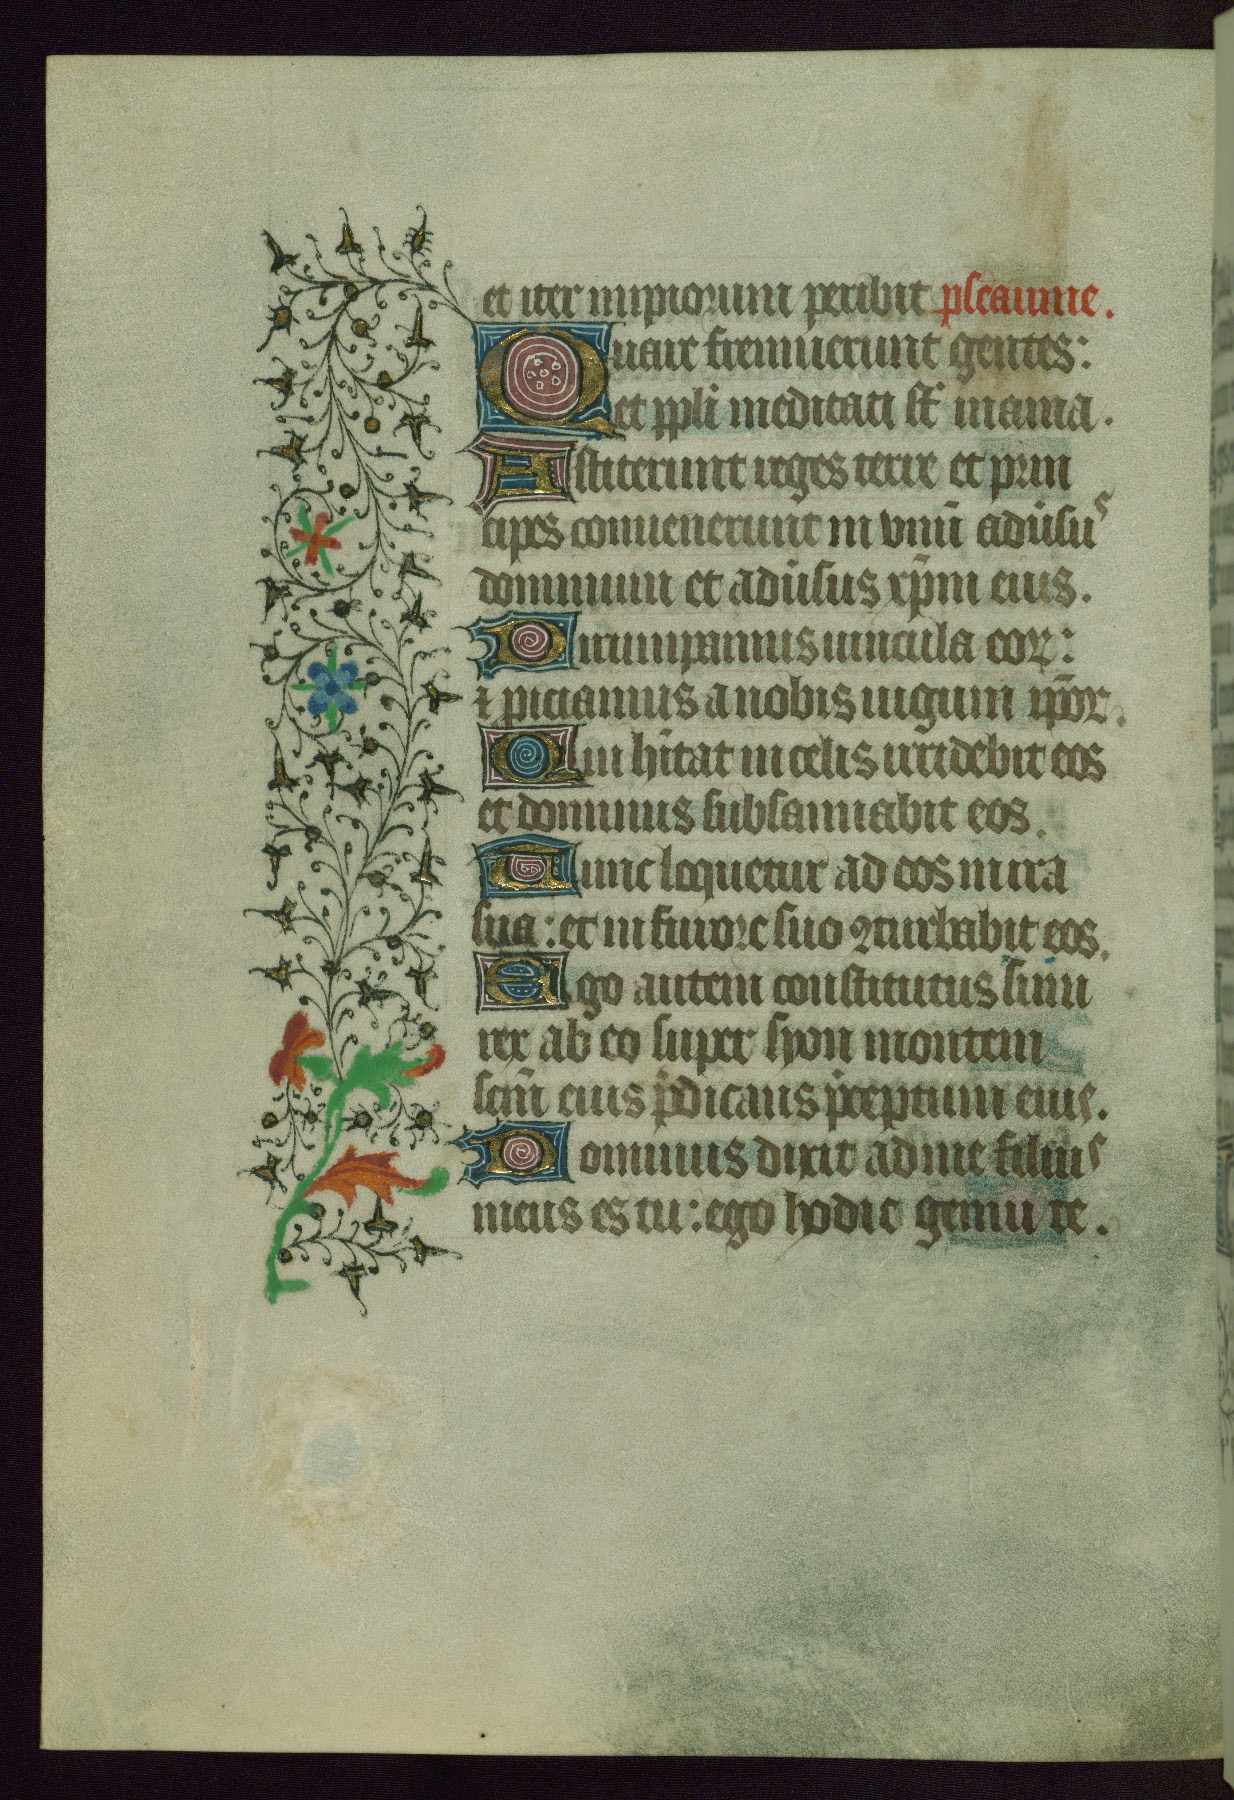 et iter impiorum peribit pseaume.
Quare fremuerunt gentes:
et ppl̄i meditati st̄ inania.
Astiterunt reges terre et prin
cipes conuenerunt in vnū adūsus
dominum et adūsus xp̄m eius.
Dirumpamus uincula eoꝝ:
⁊ piciamus a nobis iugum ip̄oꝝ.
Qui hītat in celis irridebit eos
et dominus subsannabit eos.
Tunc loquetur ad eos in ira
sua: et in furore suo ꝯturbabit eos.
Ego autem constitutus sum
rex ab eo super syon montem
scm̄ eius p̄dicans p̄ceptum eius.
Dominus dixit ad me filius
meus es tu: ego hodie genui te.